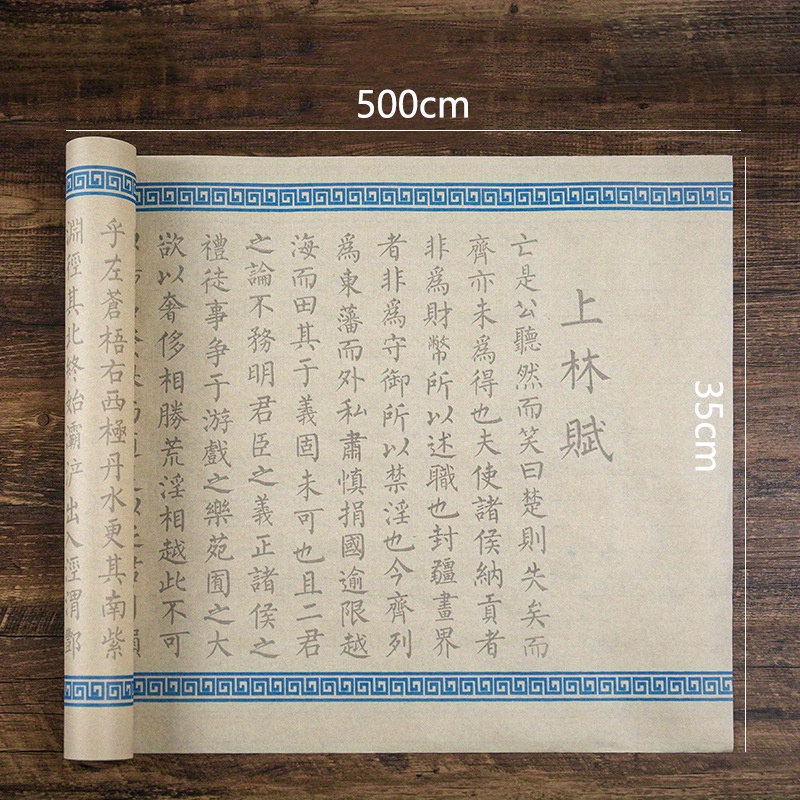 500cm
35cm
上林賦
亡是公聽然而笑曰楚則失矣而
齊亦未爲得也夫使諸侯納貢者
非爲財幣所以述職也封疆畫界
者非爲守御所以禁淫也今齊列
爲東藩而外私肅慎捐國逾限越
海而田其于義固未可也且二君
之論不務明君臣之義正諸侯之
禮徒事争于游戲之樂苑囿之大
欲以奢侈相勝荒淫相越此不可
乎左蒼梧右西極丹水更其南紫
淵徑其北終始灞浐出入涇渭酆